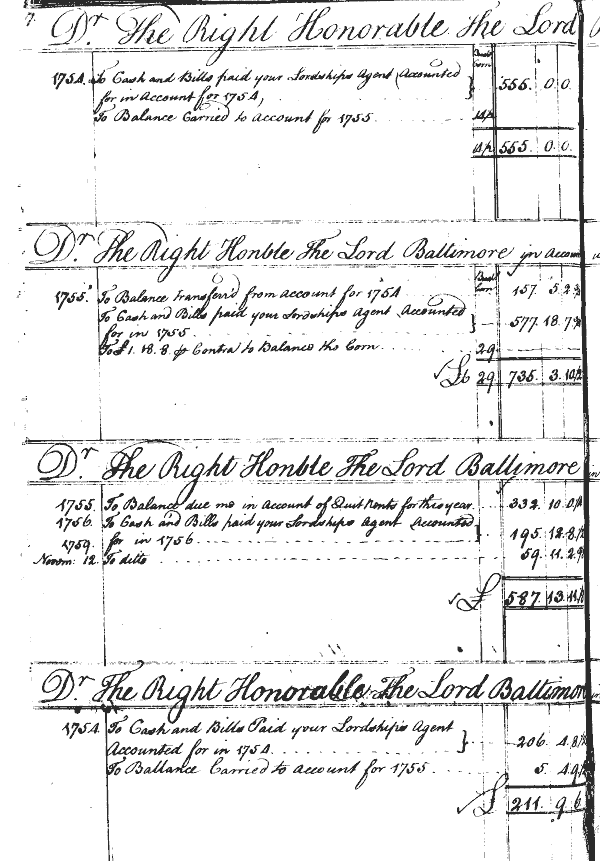 7.
Dr. The Right Honorable The Lord
1754. To Cash and Bills paid your Lordships Agent (Accounted } 555. 0. 0.
for in Account for 1754,
To Balance Carried to Account for 1755
555. 0. 0.
Dr. The Right Honble The Lord Baltimore in Accou
1755. To Balance transferr'd from Account for 1754 157. 5. 2
To Cash and Bills paid your Lordships Agent Accounted } 577. 18. 7
for in 1755
To £1. 18. 8. Contra to Balance the Corn 29
£ 29 735. 3. 10
Dr. The Right Honble The Lord Baltimore in
1755. To Balance due me in Account of Quit Rents for this year. 332. 10. 0
1756. To Cash and Bills paid your Lordships Agent Accounted } 195. 12. 8
for in 1756
1759. Novem: 12. To ditto 59. 11. 2
£ 587. 13. 11
Dr. The Right Honorable The Lord Baltimor
1754 To Cash and Bills Paid your Lordships Agent
Accounted for in 1754 } 206. 4. 8
To Ballance Carried to Account for 1755 5. 4. 9
£ 211. 9. 6